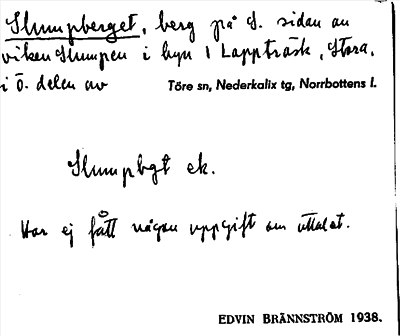 Slumpberget, berg på S. sidan av
viken Slumpen i byn Lappträsk, Stora,
i ö. delen av Töre sn, Nederkalix tg, Norrbottens l.
Slumpbgt ek.
Har ej fått någon uppgift om uttalet.
EDVIN BRÄNNSTRÖM 1938.